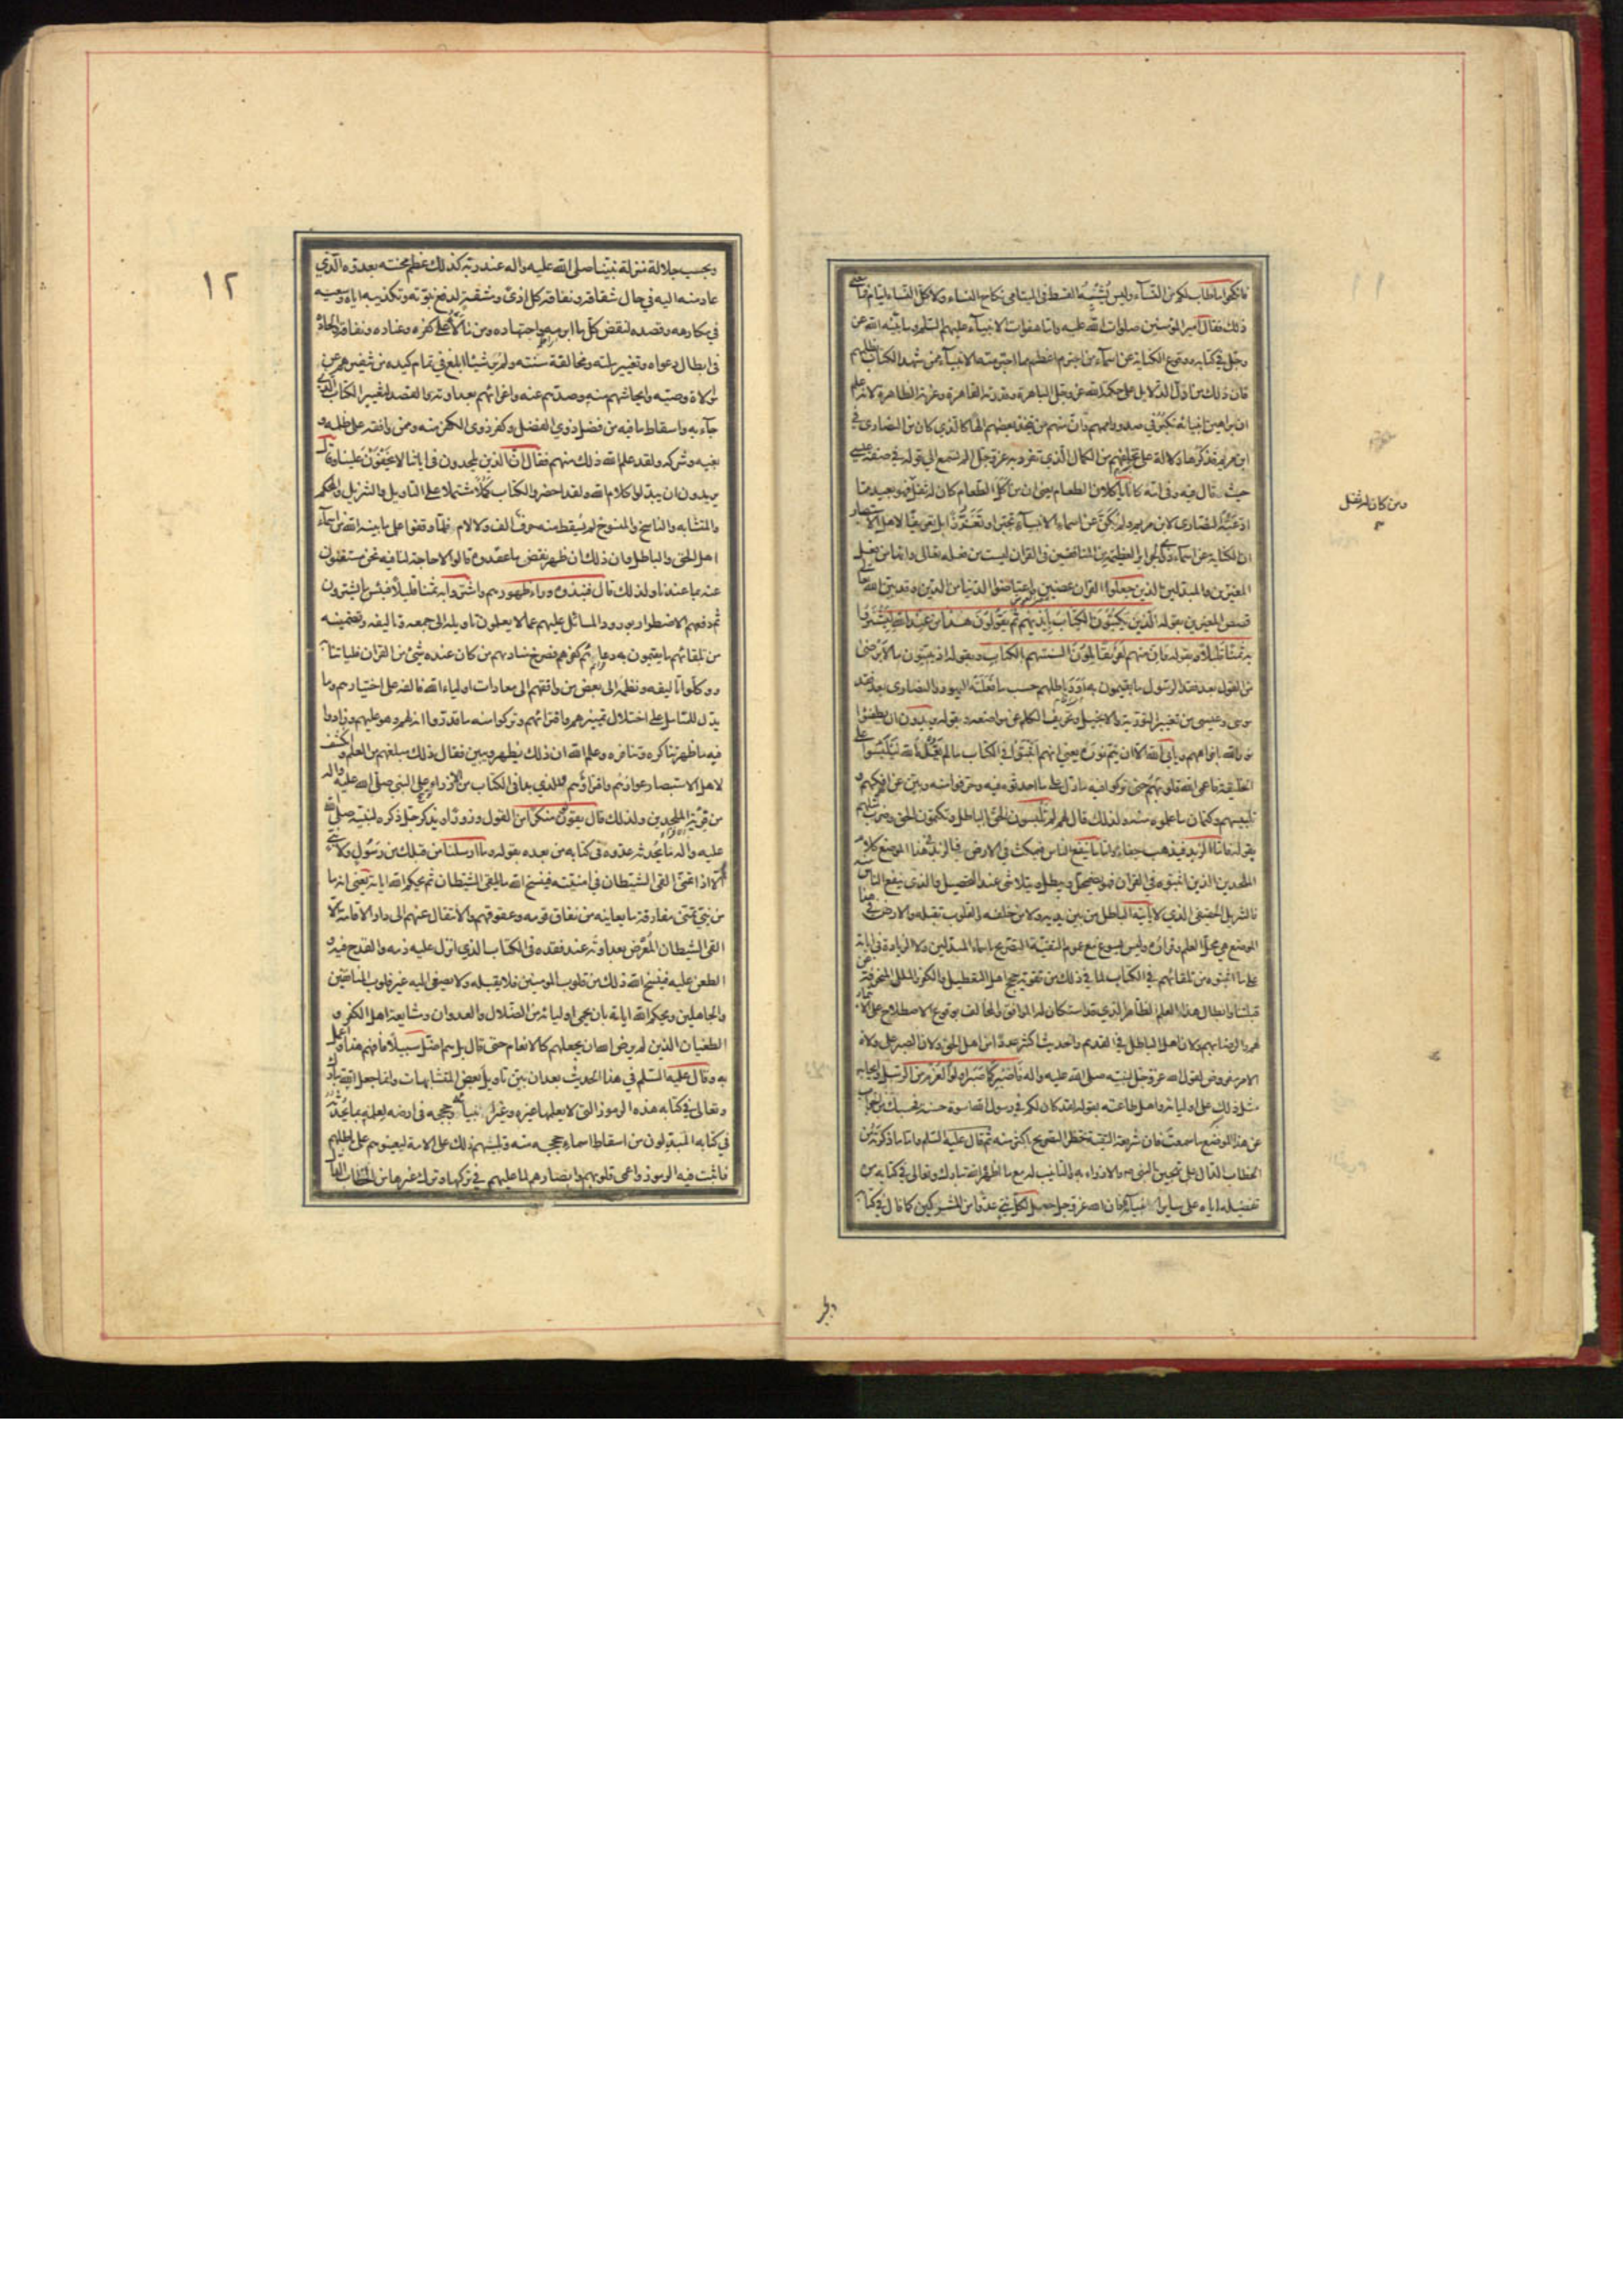 فانكحوا ما طاب لكم من النسآء وليس يُشبه القسط فى اليتامى نكاح النساء ولا كل النساء ايتام فما معنى
ذلك فقال امير المؤمنين صلوات الله عليه واما هفوات الانبيآء عليهم السلم وما بيّنه الله عن
وجل فى كتابه ووقوع الكناية عن اسمآء من اجترم اعظم مما اجترمته الانبيآء ممن شهد الكتاب بظلمهم
فان ذلك من ادل الدلايل على حكمة الله عز وجل الباهرة وقدرته القاهرة وعزته الظاهرة لانه علم
ان براهين انبيائه تكبُر فى صدور اممهم وان منهم من يتخذ بعضهم الها كالذى كان من النصارى فى
ابن مريم فذكرها دلالة على تخلفهم من الكمال الذى تفرد به عز وجل الم تسمع الى قوله فى صفة عيسى
حيث قال فيه وفى امه كانا يأكلان الطعام يعنى ان من اكل الطعام كان له ثفل فهو بعيد مما
ادعته النصارى لابن مريم ولم يكنّ عن اسماء الانبيآء تجبرا وتعززا بل تعريفا لاهل الاستبصار
ان الكناية عن اسمآء ذوى الجراير العظيمة من المنافقين فى القران ليست من فعله تعالى وانها من فعل
المغيرين والمبدلين الذين جعلوا القران عضين واعتاضوا الدنيا من الدين وقد بين الله تعالى
قصص المغيرين بقوله الّذين يَكْتُبُونَ الكِتَابَ بِأَيْدِيهِم ثُمّ يَقُولُونَ هذا من عِندِ الله لِيَشْتَرُوا
به ثمنا قليلا وبقوله وان منهم لفريقا يلوُنَ السنتهم بالكتاب وبقوله اذ يبيتون ما لا يرضى
من القول بعد فقد الرسول ما يقيمون به اَوَدَ باطلهم حسب ما فعلته اليهود والنصارى بعد فقد
موسى وعيسى من تغيير التورية والانجيل وتحريف الكلم عن مواضعه وبقوله يريدون ان يطفئوا
نور الله بافواههم ويابى الله الا ان يتم نوره يعنى انهم اثبتوا فى الكتاب ما لم يقُله الله ليلبسوا على
الخليقة فاعمى الله قلوبهم حتى تركوا فيه ما دل على ما احدثوه فيه وحرفوا منه وبين عن افكهم و
تلبيسهم وكتمان ما علموه منه ولذلك قال لهم لم تلبسون الحق بالباطل وتكتمون الحق وضرب مثلهم
بقوله فاما الزبد فيذهب جفاء واما ما ينفع الناس فيمكث فى الارض فالزبد فى هذا الموضع كلام
الملحدين الذين اثبتوه فى القران فهو يضمحل ويبطل ويتلاشى عند التحصيل والذى ينفع الناس منه
فالتنزيل الحقيقى الذى لا يأتيه الباطل من بين يديه ولا من خلفه والقلوب تقبله والارض فى هذا
الموضع هى محل العلم وقراره وليس يسوغ مع عموم التقية التصريح باسماء المبدلين ولا الزيادة فى اياته
على ما اثبتوه من تلقائهم فى الكتاب لما فى ذلك من تقوية حجج اهل التعطيل والكفر والملل المنحرفة عن
قبلتنا وابطال هذا العلم الظاهر الذى قد استكان له الموافق والمخالف بوقوع الاصطلاح على الايتمار
لهم والرضا بهم ولان اهل الباطل فى القديم والحديث اكثر عددا من اهل الحق ولان الصبر على ولاة
الامر مفروض لقول الله عز وجل لنبيه صلى الله عليه واله فاصبر كما صَبَر اولوا العزم من الرسل وايجابه
مثل ذلك على اوليائه واهل طاعته بقوله لقد كان لكم فى رسول الله اسوة حسنة فحسبك من الجواب
عن هذا الموضع ما سمعت فان شريعة التقية تحظر التصريح باكثر منه ثم قال عليه السلم واما ما ذكرته من
الخطاب الدال على تهجين النبى ص والازراء به والتانيب له مع ما اظهره الله تبارك وتعالى فى كتابه من
تفضيله اياه على سائر انبيآئه فان الله عز وجل جعل لكل نبى عدوا من المشركين كما قال فى كتابه
ومن كان له ثفل
وبحسب جلالة منزلة نبينا صلى الله عليه واله عند ربه كذلك عظم محنته بعدوه الّذي
عاد منه اليه في حال شقاقه ونفاقه كل اذى ومشقة لدفع نبوّته وتكذيبه اياه وسعيه
في مكارهه وقصده لنقض كل ما ابرمه واجتهاده ومن مالأه على كفره وعناده ونفاقه والحاده
فى ابطال دعواه وتغيير ملته ومخالفة سنته ولم ير شيئا ابلغ في تمام كيده من تنفيرهم عن
موالاة وصيه وايحاشهم منه وصدهم عنه واغرائهم بعداوته والقصد لتغيير الكتاب الذي
جآء به واسقاط ما فيه من فضل ذوي الفضل وكفر ذوى الكفر منه وممن وافقه على ظلمه و
بغيه وشركه ولقد علم الله ذلك منهم فقال ان الذين يلحدون فى اياتنا لا يَخْفَوْنَ علينا وقال
يريدون ان يبدلوا كلام الله ولقد احضروا الكتاب كَمُلاً مشتملا على التاويل والتنزيل والمحكم
والمتشابه والناسخ والمنسوخ لم يُسقط منه حرفٌ الف ولا لام فلمّا وقفوا على ما بينه الله من اسمآء
اهل الحق والباطل وان ذلك ان ظهر نقض ما عقدوه قالوا لا حاجة لنا فيه نحن مستغنون
عنه بما عندنا ولذلك قال فنبذوه وراء ظهورهم واشتروا به ثمنا قليلاً فبئس ما يشترون
ثم دفعهم الاضطرار بورود المسائل عليهم عما لا يعلمون تاويله الى جمعه وتاليفه وتضمينه
من تلقائهم ما يقيمون به دعائم كفرهم فصرخ مناديهم من كان عنده شئ من القران فلياتنا به
ووكلوا تاليفه ونظمه الى بعض من وافقهم الى معادات اولياء الله فالفه على اختيارهم وما
يدل للتامل على اختلال تمييزهم وافترائهم وتركوا منه ما قدروا انه لهم وهو عليهم وزادوا
فيه ما ظهر تناكره وتنافره وعلم الله ان ذلك يظهر ويبين فقال ذلك مبلغهم من العلم وانكشف
لاهل الاستبصار عوارهم وافتراؤهم والذي بدا فى الكتاب من الازراء على النبي صلى الله عليه واله
من فرية الملحدين ولذلك قال يقولون منكرا من القول وزورا ويذكر جل ذكره لنبيه صلى الله
عليه واله ما يُحدثه عدوه فى كتابه من بعده بقوله وما ارسلنا من قبلك من رسُولٍ ولا نبى
الا اذا تمنّى القى الشيطان في امنيّته فينسخ الله ما يلقى الشيطان ثم يحكم الله اياته يعنى انه ما
من نبيّ تمنى مفارقة ما يعاينه من نفاق قومه وعقوقهم والانتقال عنهم الى دار الاقامة الّا
القى الشيطان المُعَرّض بعداوته عند فقده فى الكتاب الذى انزل عليه ذمه والقدح فيه و
الطعن عليه فينسخ الله ذلك من قلوب المومنين فلا يقبله ولا يصغى اليه غير قلوب المنافقين
والجاهلين ويحكم الله اياته بان يحمي اوليائه من الضلال والعدوان ومشايعة اهل الكفر و
الطغيان الذين لم يرض الله ان يجعلهم كالانعام حتى قال بل هم اضل سبيلاً فافهم هذا واعمل
به وقال عليه السلم في هذا الحديث بعد ان بيّن تاويل بعض المتشابهات وانما جعل الله تبارك
وتعالى فى كتابه هذه الرموز التى لا يعلمها غيره وغير انبيآئه وحججه فى ارضه لعلمه بما يحدثه
في كتابه المبدلون من اسقاط اسماء حججه منه وتلبيسهم ذلك على الامة ليعينوهم على باطلهم
فاثبت فيه الرموز واعمى قلوبهم وابصارهم لما عليهم في تركها وترك غيرها من الخطاب الدال
١٢